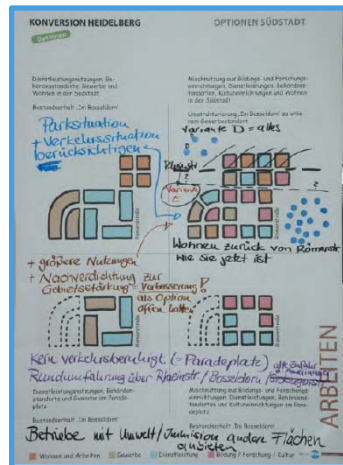 KONVERSION HEIDELBERG
OPTIONEN SÜDSTADT
Optionen
Dienstleistungsnutzungen, Be-
hördenstandorte, Gewerbe und
Wohnen in der Südstadt
Bestandserhalt „Im Bosseldorn“
Mischnutzung aus Bildungs- und Forschungs-
einrichtungen, Dienstleistungen, Behörden-
standorten, Kultureinrichtungen und Wohnen
in der Südstadt
Umstrukturierung „Im Bosseldorn“ zu urba-
nem Gewerbestandort
Variante D = alles
Parksituation
+ Verkehrssituation
berücksichtigen
Rheinstr.
Variante
Wohnen zurück von Römerstr.
wie sie jetzt ist
+ größere Nutzungen
+ Nachverdichtung zur
Gebietsstärkung = Verbesserung!
als Option
offen halten
Kern verkehrsberuhigt (= Paradeplatz)
Rundumfahrung über Rheinstr. / Bosseldorn /
Dienstleistungsnutzungen, Behörden-
standorte und Gewerbe am Parade-
platz
Mischnutzung aus Bildungs- und Forschungs-
einrichtungen, Dienstleistungen, Behörden-
standorten und Kultureinrichtungen am Para-
deplatz
Bestandserhalt „Im Bosseldorn“
Betriebe mit Umwelt/Immission andere Flächen
anbieten
Wohnen und Arbeiten
Gewerbe
Dienstleistung
Bildung / Forschung / Kultur
ARBEITEN